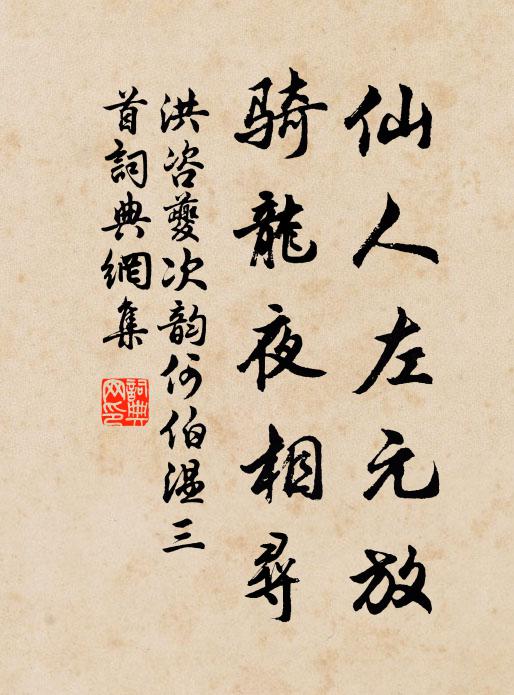 仙人左元放
騎龍夜相尋
洪咨夔次韵何伯温三
首詞典網集
詞典网印